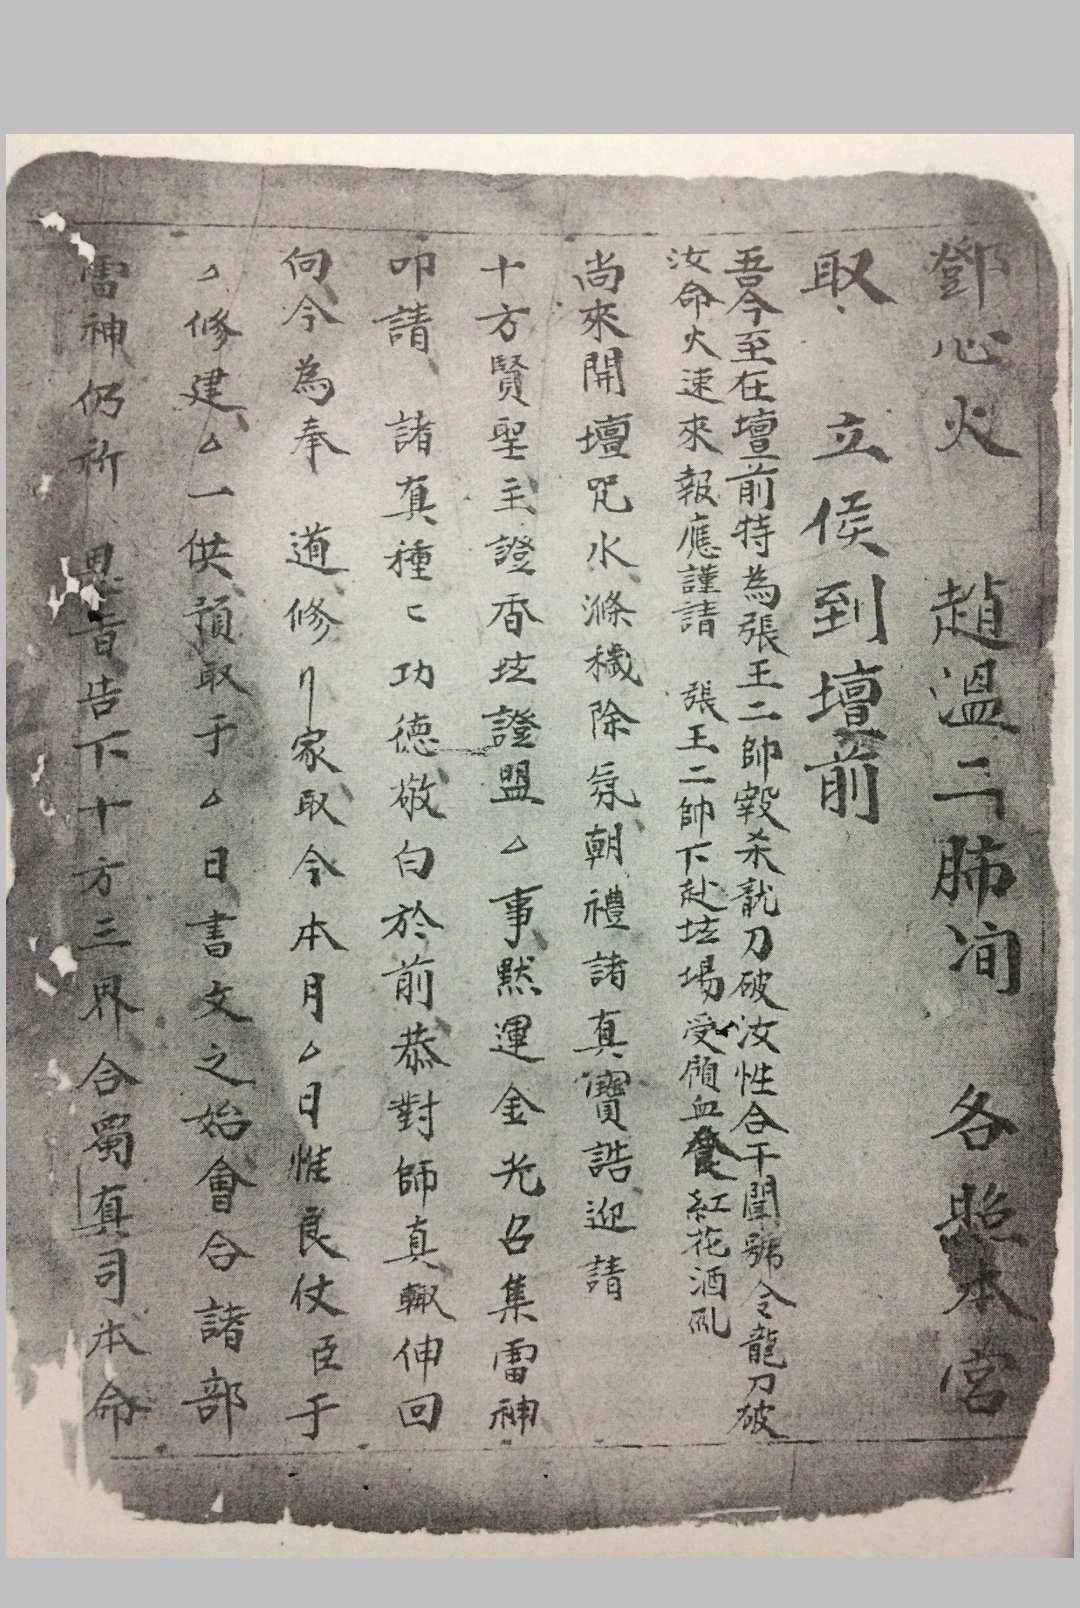 鄧心火　趙溫二肺洵　各照本宮
取　立侯到壇前
吾今至在壇前特為張王二帥穀杀龍刀破汝性合干聞號令龍刀破
汝命火速來報應謹請　張王二帥下赴坛場受領血食紅花酒
尚來開壇咒水滌穢除氛朝禮諸真寶誥迎請
十方賢聖主證香坛證盟厶事黙運金光召集雷神
叩請　諸真種〻功德敬白於前恭對師真輙伸回
向今為奉　道修卩家取今本月厶日惟良仗臣于
厶修建厶一供預取于厶日書文之始會合諸部
雷神仍祈　恩旨告下十方三界合屬真司本命